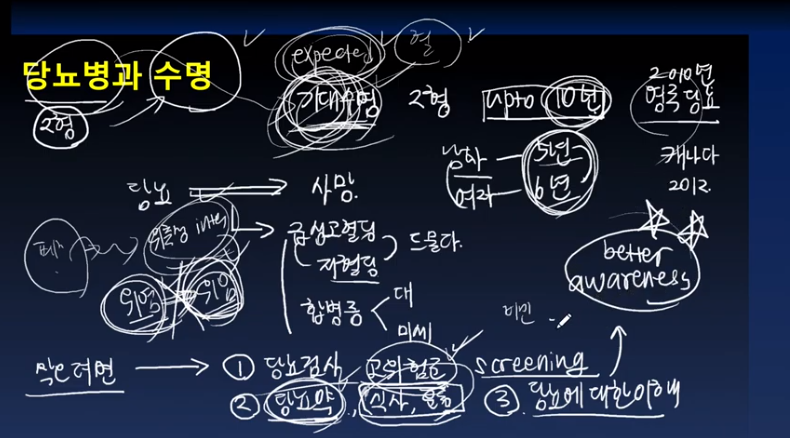 당뇨병과 수명
2형
expected
혈
기대수명
2형
upto 10년
2010년
영국당뇨
남자 5년
여자 6년
캐나다
2012.
당뇨
사망.
급성고혈당
저혈당
드물다.
위험 위험
합병증
대
미세
better
awareness
이민
막으려면
① 당뇨검사 고위험군 screening
② 당뇨약, 식사, 운동
③ 당뇨에대한이해